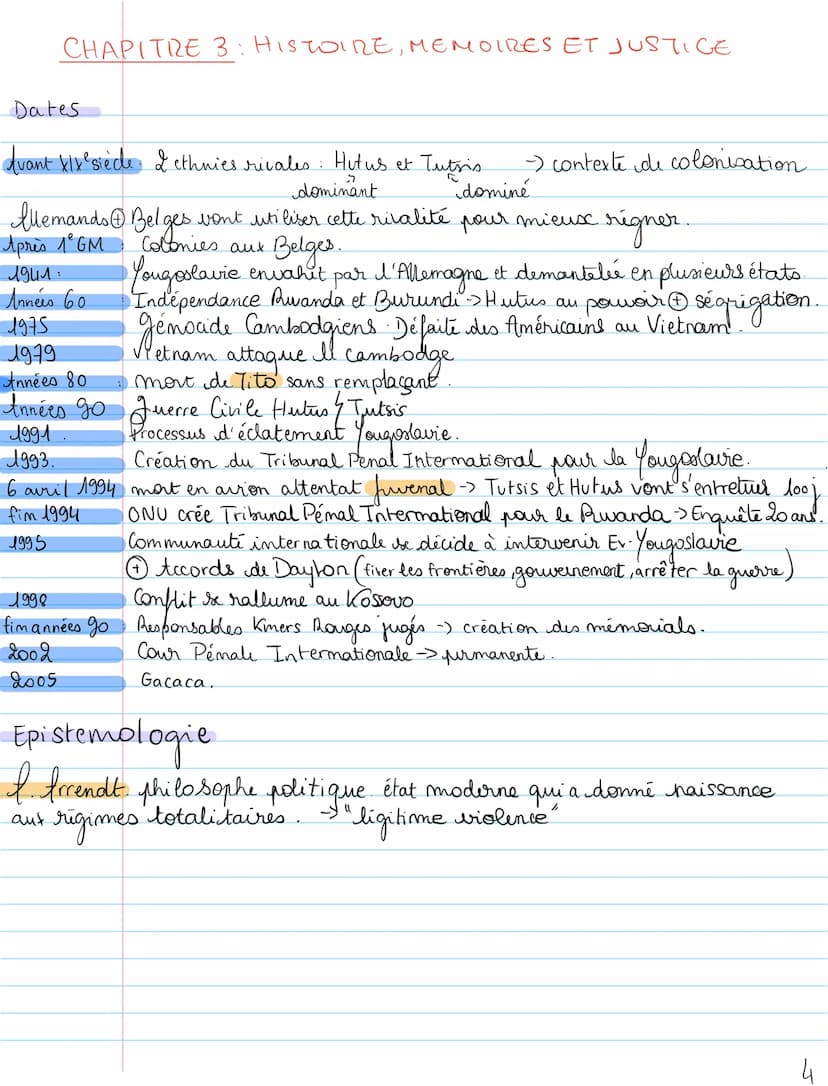 CHAPITRE 3 : HISTOIRE, MEMOIRES ET JUSTICE
Dates
Avant XIXe siècle : 2 ethnies rivales : Hutus et Tutsis -> contexte de colonisation
dominant dominé
Allemands ⊕ Belges vont utiliser cette rivalité pour mieux régner.
Après 1e GM : Colonies aux Belges.
1941 : Yougoslavie envahit par l'Allemagne et demantelée en plusieurs états.
Années 60 : Indépendance Rwanda et Burundi -> Hutus au pouvoir ⊕ ségrégation.
1975 génocide Cambodgiens. Défaite des Américains au Vietnam.
1979 Vietnam attaque le Cambodge
Années 80 : mort de Tito sans remplaçant.
Années 90 guerre Civile Hutus ↯ Tutsis
1991. Processus d'éclatement Yougoslavie.
1993. Création du Tribunal Penal International pour la Yougoslavie.
6 avril 1994 mort en avion attentat Juvenal -> Tutsis et Hutus vont s'entretuer 100j
fin 1994 ONU crée Tribunal Pénal International pour le Rwanda -> Enquête 20 ans.
1995 Communauté internationale se décide à intervenir Ex-Yougoslavie
⊕ Accords de Dayton (fixer les frontières, gouvernement, arrêter la guerre)
1998 Conflit se rallume au Kosovo
fin années 90 Responsables Kmers Rouges jugés -> création des mémorials.
2002 Cour Pénale Internationale -> permanente.
2005 Gacaca.
Epistemologie
Arrendt. philosophe politique. état moderne qui a donné naissance
aux régimes totalitaires. -> "légitime violence"
4